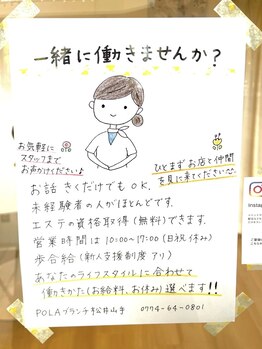 一緒に働きませんか？
お気軽に
スタッフまで
お声がけください♪
ひとまず お店と仲間
を見に来てくださいな。
お話 きくだけでも OK.
未経験者の人がほとんどです.
エステの資格取得 (無料)できます.
営業時間は 10:00~17:00 (日祝休み)
歩合給 (新人支援制度アリ)
あなたのライフスタイルに合わせて
働きかた(お給料、お休み)選べます!!
POLAブランチ松井山手 0774-64-0801
Insta